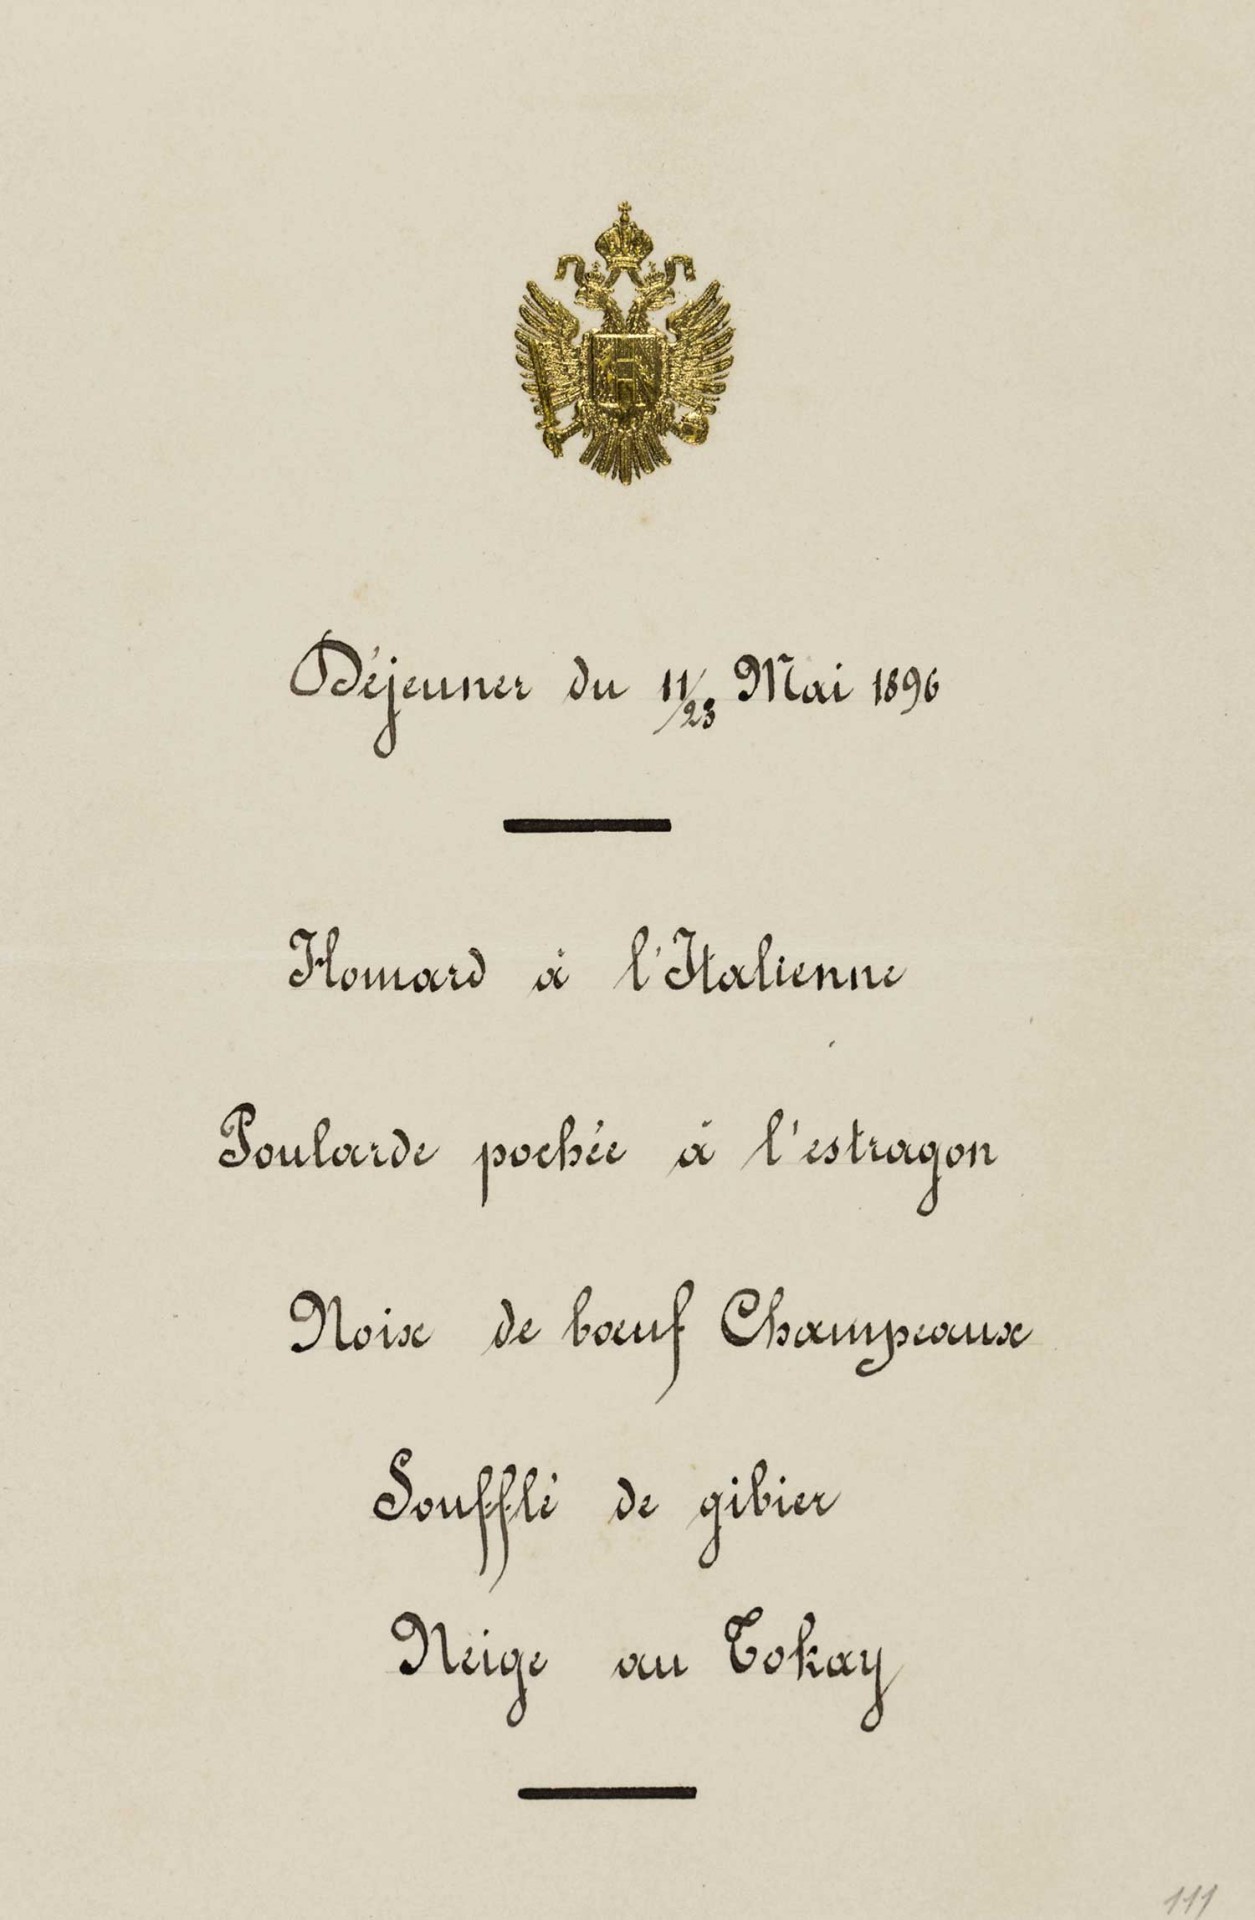 Déjeuner du 11/23 Mai 1896
Homard à l'Italienne
Poularde pochée à l'estragon
Noix de bœuf Champeaux
Soufflé de gibier
Neige au Tokay
111